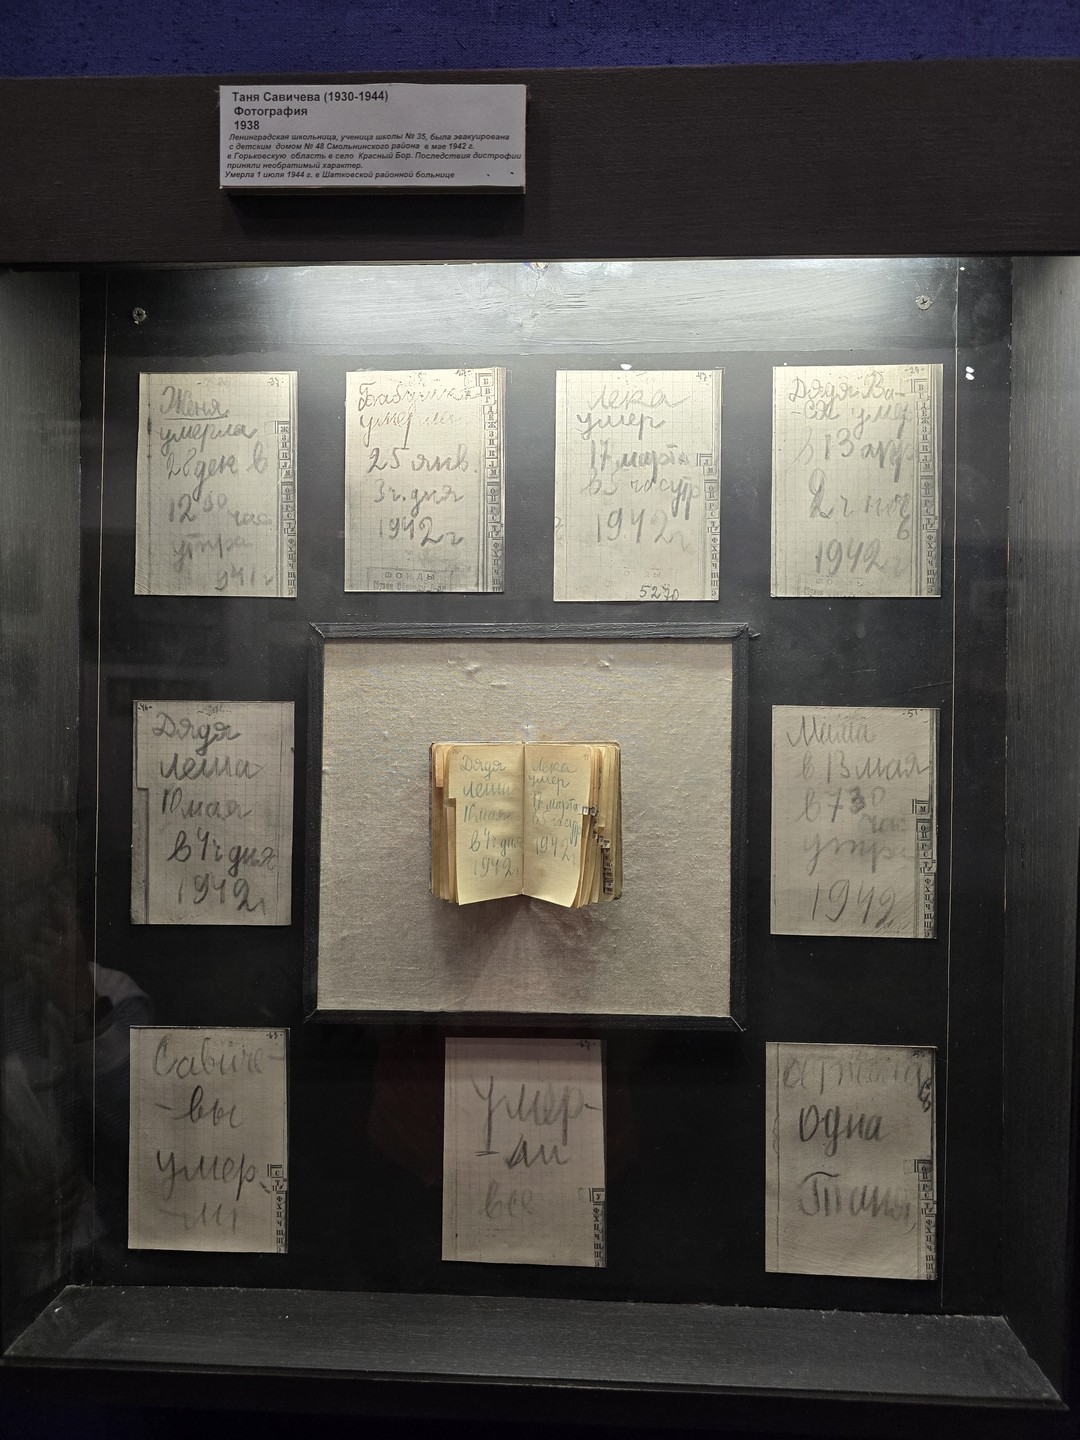 Таня Савичева (1930-1944)
Фотография
1938
Ленинградская школьница, ученица школы № 35, была эвакуирована
с детским домом № 48 Смольнинского района в мае 1942 г.
в Горьковскую область в село Красный Бор. Последствия дистрофии
приняли необратимый характер.
Умерла 1 июля 1944 г. в Шатковской районной больнице
Женя
умерла
28 дек в
12 30 час
утра
941 г
Бабушка
умерла
25 янв.
3 ч. дня
1942 г
ФОНДЫ
Лека
умер
17 марта
в 5 час утр
1942 г
5270
Дядя Ва-
-ся умер
в 13 апр
2 ч ноч
1942 г
Дядя
Леша
10 мая
в 4 ч дня
1942 г
Дядя
Леша
10 мая
в 4 ч дня
1942 г
Лека
умер
17 марта
в 5 час утр
1942 г
Мама
в 13 мая
в 7 30
час
утра
1942
Савиче-
-вы
умер
-ли
Умер-
-ли
все
Осталась
одна
Таня